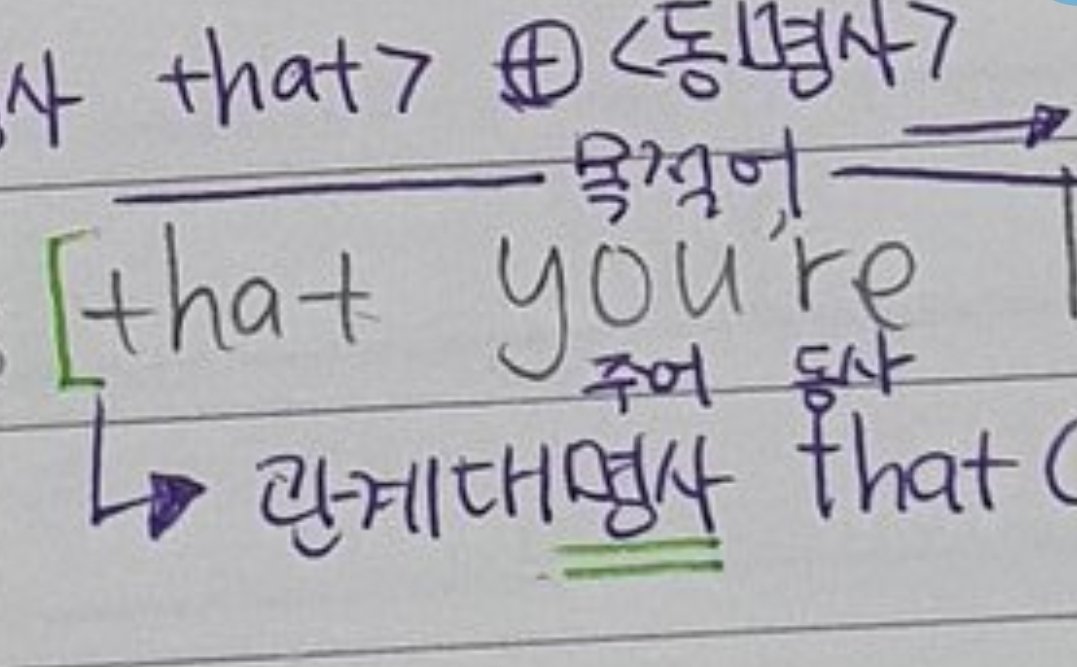 사 that> ⊕ <동명사>
목적어
[that you're
주어 동사
관계대명사 that